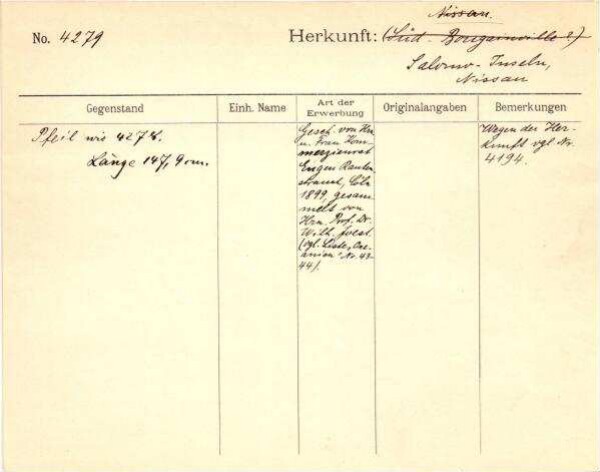 Nissan.
No. 4279
Herkunft: (Süd-Bougainville?)
Salomo-Inseln,
Nissan
Gegenstand
Einh. Name
Art der
Erwerbung
Originalangaben
Bemerkungen
Pfeil wie 4278.
Länge 147,9 cm.
Gesch. von Hrn.
u. Frau Kom-
merzienrat
Eugen Rauten-
strauch, Cöln
1899, gesam-
melt von
Hrn. Prof. Dr.
Wilh. Joest.
(vgl. Liste „Oze-
anien" Nr. 43-
44).
Wegen der Her-
kunft vgl. Nr.
4194.